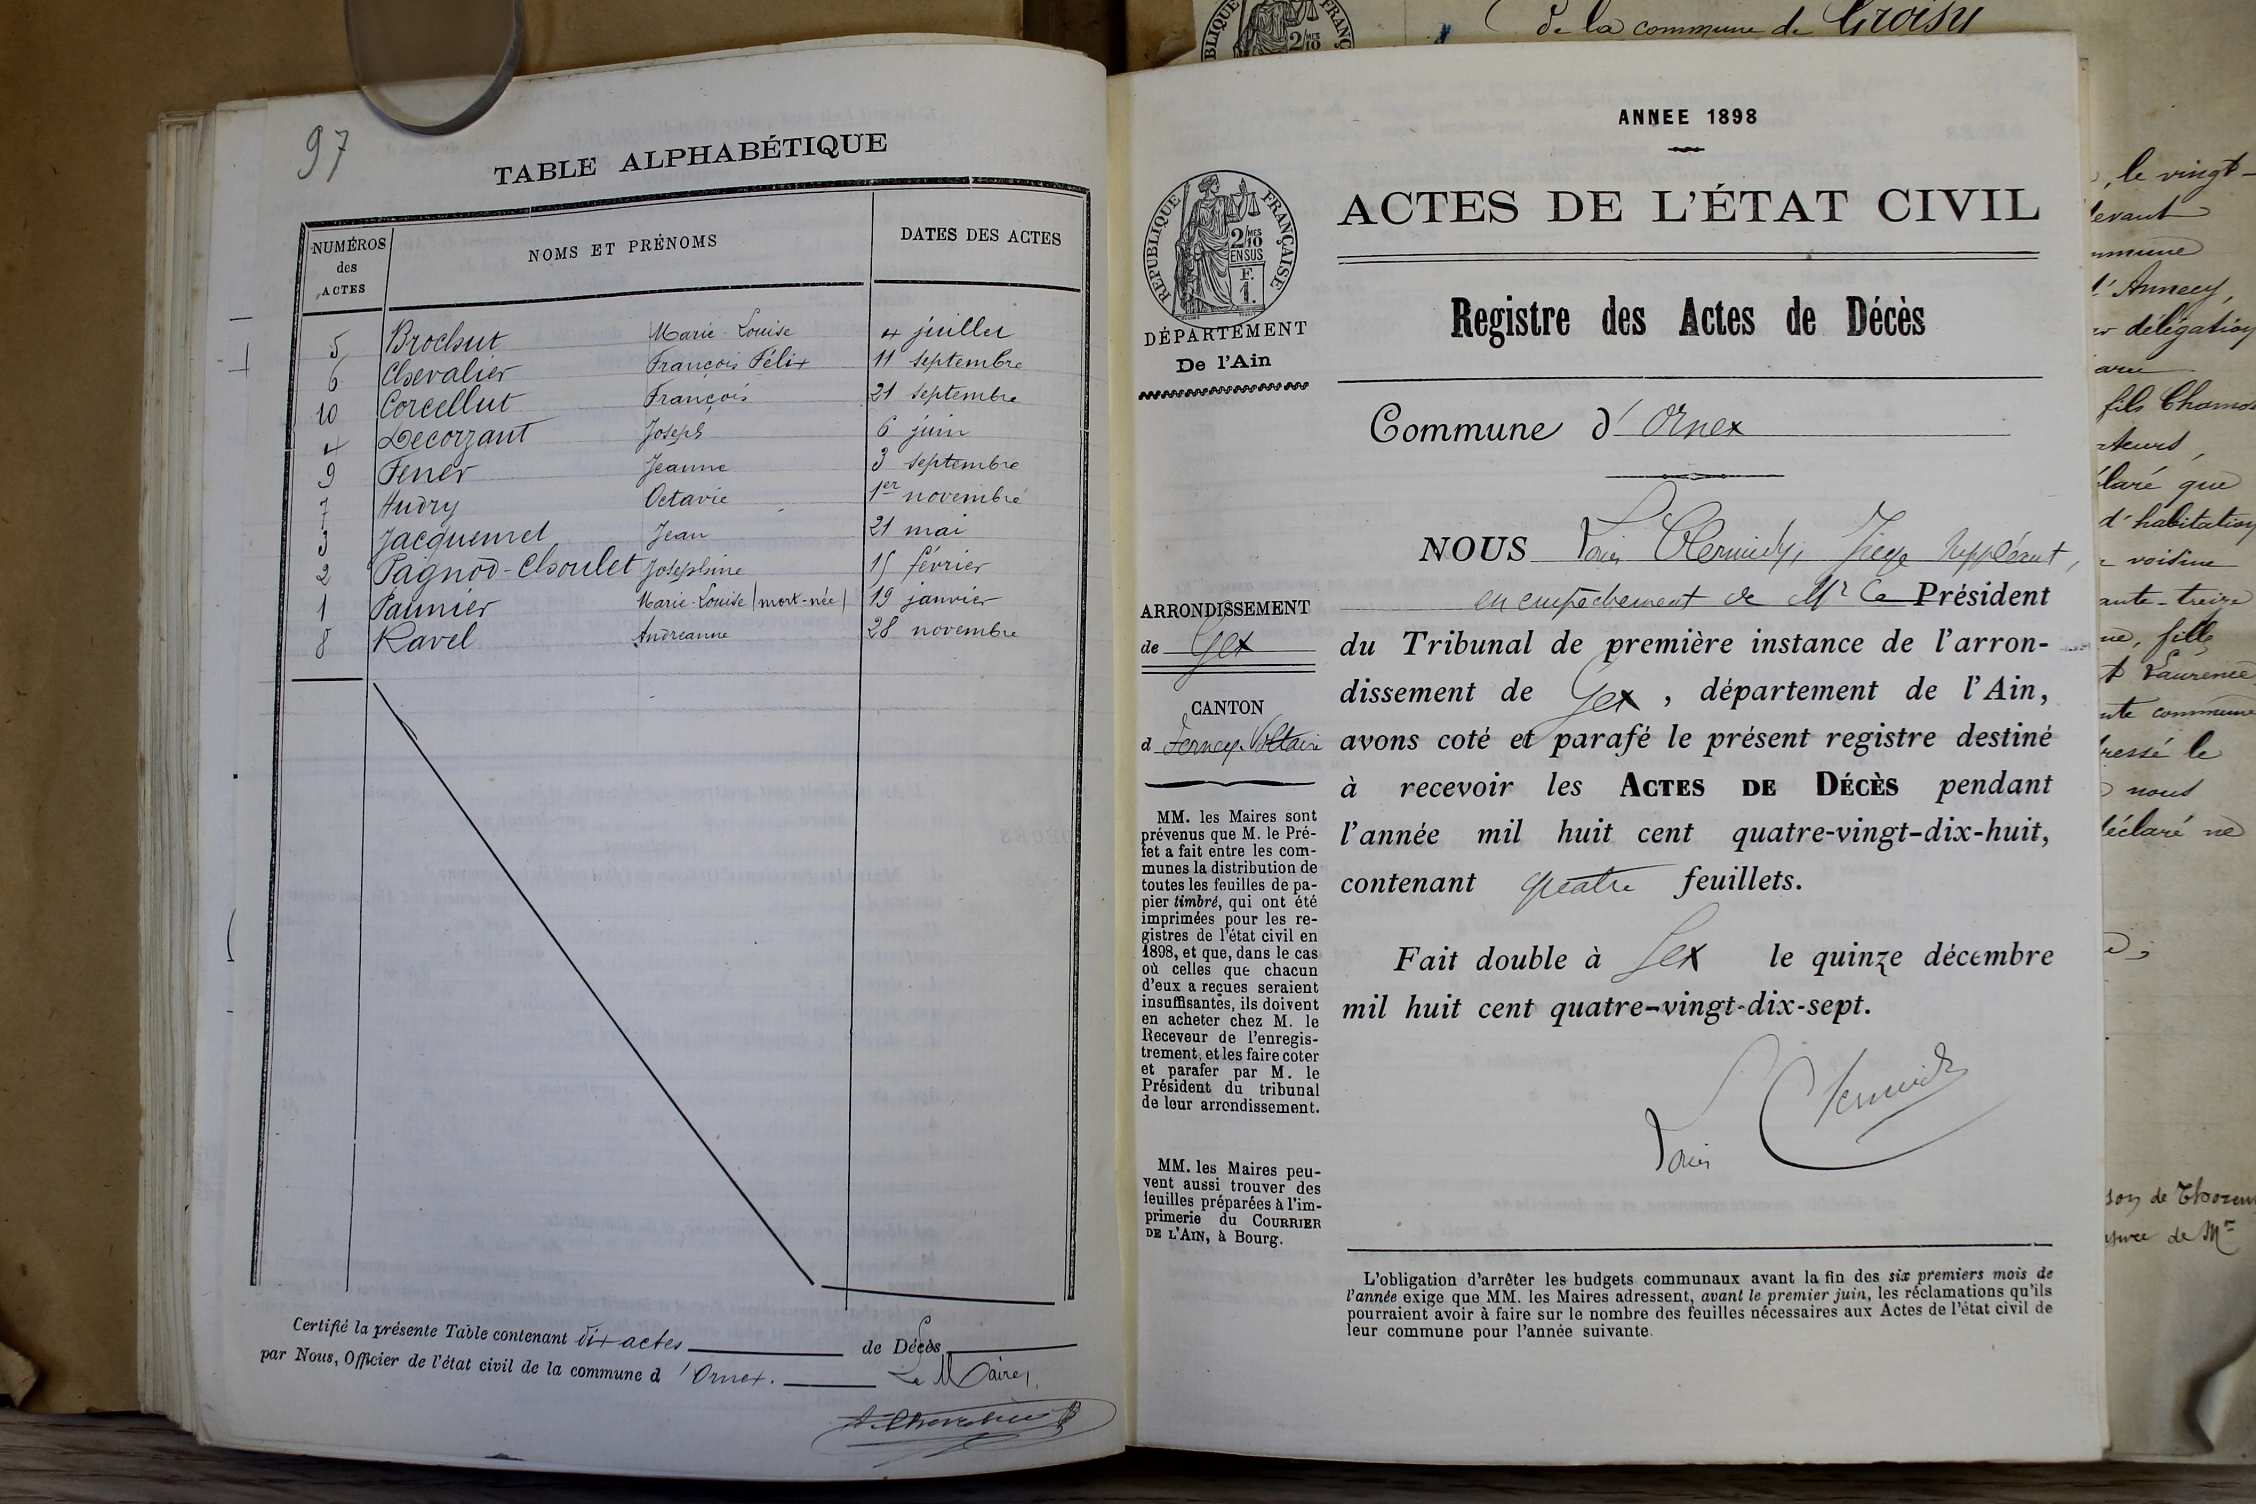 de la commune de Groisy
97
TABLE ALPHABÉTIQUE
NUMÉROS des ACTES
NOMS ET PRÉNOMS
DATES DES ACTES
5 Brochut Marie-Louise 4 juillet
6 Chevalier François Félix 11 septembre
10 Corcellut François 21 septembre
4 Decorzant Joseph 6 juin
9 Fener Jeanne 3 septembre
7 Hudry Octavie 1er novembre
3 Jacquemet Jean 21 mai
2 Pagnod-Choulet Joséphine 15 février
1 Paunier Marie-Louise (mort-née) 19 janvier
8 Ravel Andréanne 28 novembre
Certifié la présente Table contenant dix actes de Décès
par Nous, Officier de l'état civil de la commune d'Ornex.
Le Maire,
ANNEE 1898
ACTES DE L'ÉTAT CIVIL
RÉPUBLIQUE FRANÇAISE
2/10 MES
EN SUS
F.
1.
DÉPARTEMENT
De l'Ain
Registre des Actes de Décès
Commune d'Ornex
ARRONDISSEMENT
de Gex
CANTON
d Ferney-Voltaire
MM. les Maires sont
prévenus que M. le Pré-
fet a fait entre les com-
munes la distribution de
toutes les feuilles de pa-
pier timbré, qui ont été
imprimées pour les re-
gistres de l'état civil en
1898, et que, dans le cas
où celles que chacun
d'eux a reçues seraient
insuffisantes, ils doivent
en acheter chez M. le
Receveur de l'enregis-
trement, et les faire coter
et parafer par M. le
Président du tribunal
de leur arrondissement.
MM. les Maires peu-
vent aussi trouver des
feuilles préparées à l'im-
primerie du COURRIER
DE L'AIN, à Bourg.
NOUS Louis Juge suppléant,
en empêchement de Mr le Président
du Tribunal de première instance de l'arron-
dissement de Gex, département de l'Ain,
avons coté et parafé le présent registre destiné
à recevoir les ACTES DE DÉCÈS pendant
l'année mil huit cent quatre-vingt-dix-huit,
contenant quatre feuillets.
Fait double à Gex le quinze décembre
mil huit cent quatre-vingt-dix-sept.
Louis
L'obligation d'arrêter les budgets communaux avant la fin des six premiers mois de
l'année exige que MM. les Maires adressent, avant le premier juin, les réclamations qu'ils
pourraient avoir à faire sur le nombre des feuilles nécessaires aux Actes de l'état civil de
leur commune pour l'année suivante.
, le vingt-
d'Annecy,
délégation
fils
déclaré que
d'habitation
voisine
fille
Laurence
commune
le
nous
déclaré ne
de
de Mr